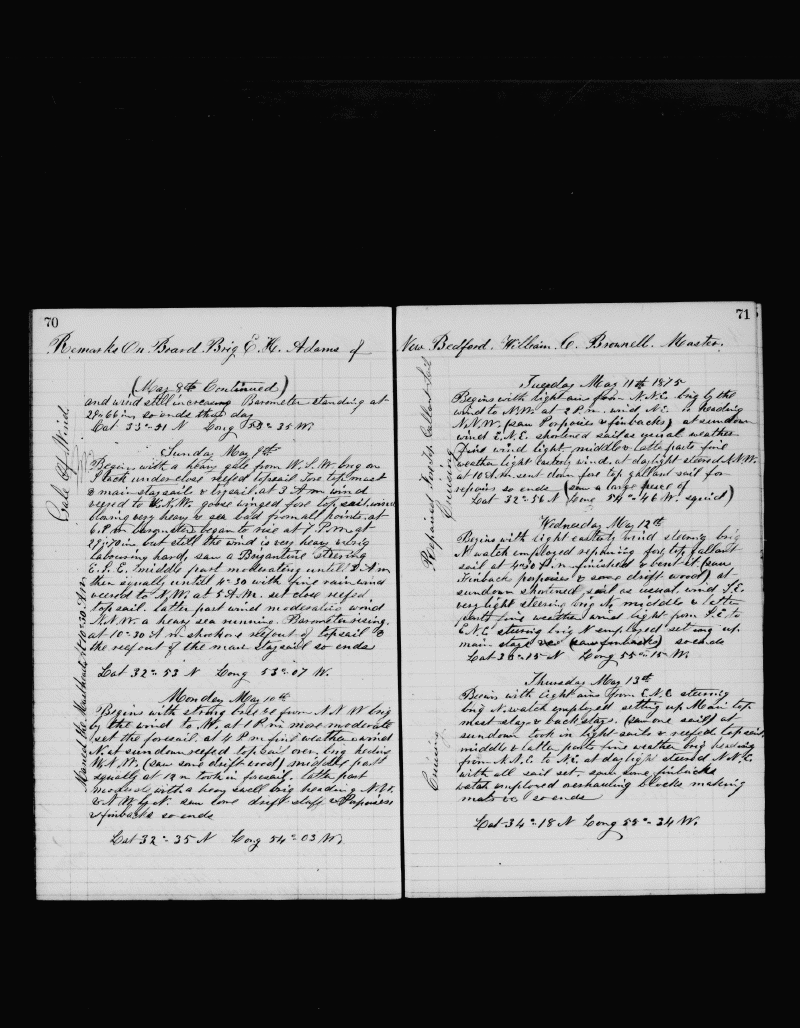 70
Remarks On Board Brig E. H. Adams of
(May 8th Continued)
and wind still increasing Barometer standing at
29-66 in so ends this day
Lat 33°-21 N Long 53°-35 W.
Gale Of Wind
Sunday May 9th
Begins with a heavy gale from W.S.W. brig on
S tack under close reefed topsail Fore top mast
& main staysails & trysail. at 3 A m wind
veered to W.N.W. goose winged fore topsail, wind
blowing very heavy & sea bad from all points. at
6 P.m barometer began to rise at 7 P.m at
29-70 in but still the wind is very heavy & brig
labouring hard, saw a Brigantine steering
E.S.E. middle part moderating until 2 A m
then squally until 4-30 with fine rain wind
veered to N.W. at 5 A.m. set close reefed
topsail. latter part wind moderating wind
N.N.W. a heavy sea running. Barometer rising.
at 10-30 A m shook a reef out of topsail &
the reef out of the main staysail so ends
Lat 32°-53 N Long 53°-07 W.
Manned the Mastheads at 10-30 A m
Monday May 10th
Begins with strong breeze from N.N.W brig
by the wind to W. at 1 P m more moderate
set the foresail. at 4 P m fine weather wind
N. at sundown reefed topsail over, brig heading
W.N.W. (saw some drift wood) middle part
squally at 12 m took in foresail. latter part
moderate with a heavy swell brig heading N.N.E.
& N.W by N. saw some drift stuff & Porpoises
& finbacks so ends
Lat 32°-35 N Long 54°-03 W.
71
New Bedford. William C. Brownell. Master.
Tuesday May 11th 1875
Begins with light airs from N.N.E. brig by the
wind to N.W. at 2 P.m. wind N.E. to heading
N.N.W. (saw Porpoises & finbacks) at sundown
wind E.N.E. shortened sail as usual weather
fine wind light. middle & latter parts fine
weather light easterly wind. at daylight steered N.N.W.
at 10 A.m. sent down fore top gallant sail for
repairs so ends (saw a large piece of
Lat 32°-56 N Long 54°-46 W. squid)
Cruising
Repaired Foretop Gallant Sail
Wednesday May 12th
Begins with light easterly wind steering brig
N. watch employed repairing fore top gallant
sail at 4-30 P.m. finished & bent it (saw
Finback porpoises & some drift wood) at
sundown shortened sail as usual. wind S.E.
very light steering brig N. middle & latter
parts fine weather wind light from S.E. to
E.N.E. steering brig N employed setting up
main stays &c (saw finbacks) so ends
Lat 33°-15 N Long 55°-15 W.
Thursday May 13th
Begins with light airs from E.N.E. steering
brig N. watch employed setting up Main top
mast stay & back stays. (saw one sail) at
sundown took in light sails & reefed topsail
middle & latter parts fine weather brig heading
from N.N.E. to N.E. at daylight steered N.N.E.
with all sail set. saw some finbacks
watch employed overhauling blocks making
mats &c so ends
Lat 34°-18 N Long 55°-34 W.
Cruising